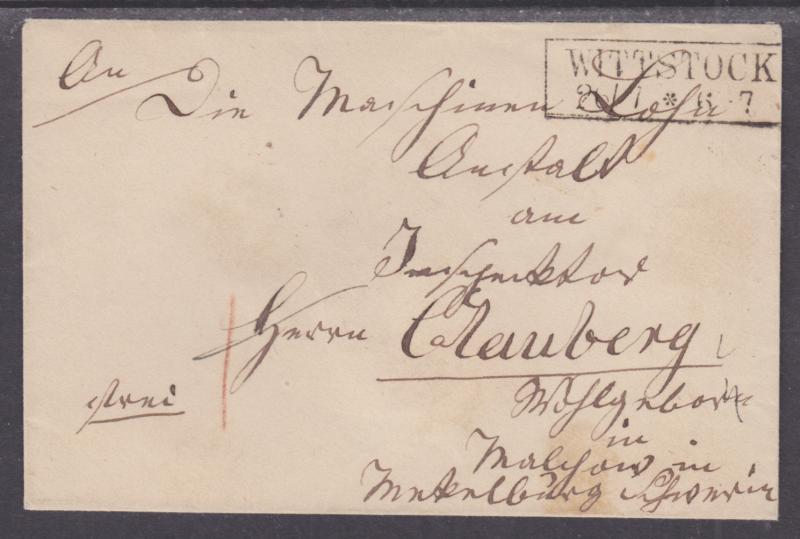 WITTSTOCK
20/1 * 6-7
An
Die Maschinen
Anstalt
am
Inspektor
Herrn Clauberg
Wohlgeborn
frei
in
Malchow in
Mekelburg Schwerin